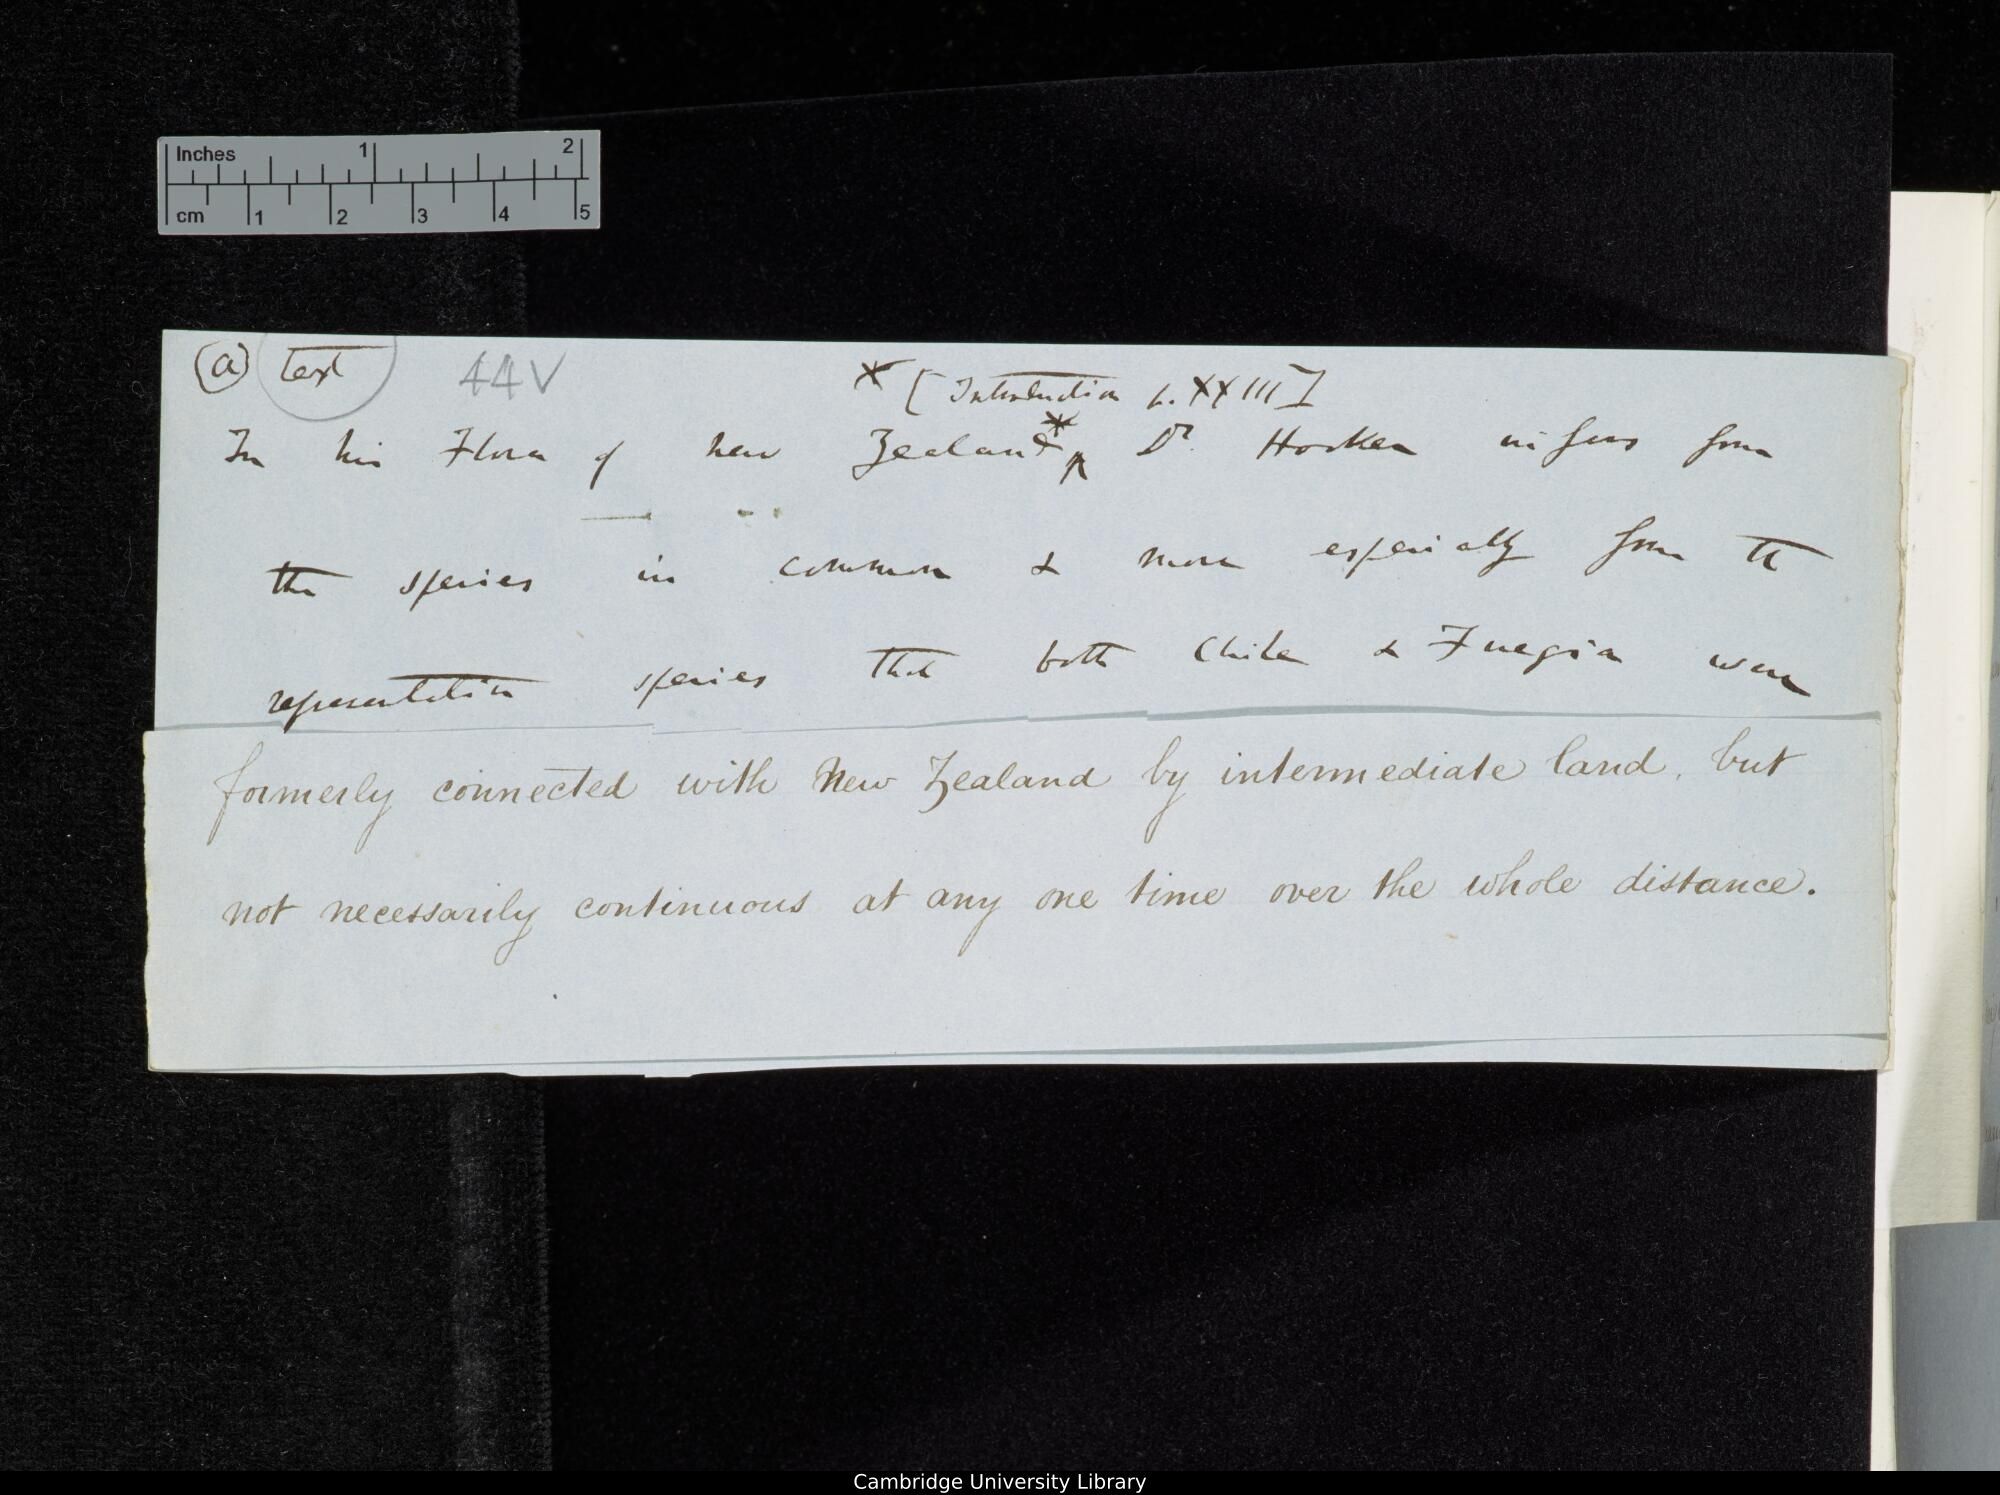 Inches 1 2
cm 1 2 3 4 5
(a) text 44V
* [Introduction p. XXIII]
In his Flora of New Zealand * ^ Dr. Hooker infers from
the species in common & more especially from the
representative species that both Chile & Fuegia were
formerly connected with New Zealand by intermediate land, but
not necessarily continuous at any one time over the whole distance.
Cambridge University Library